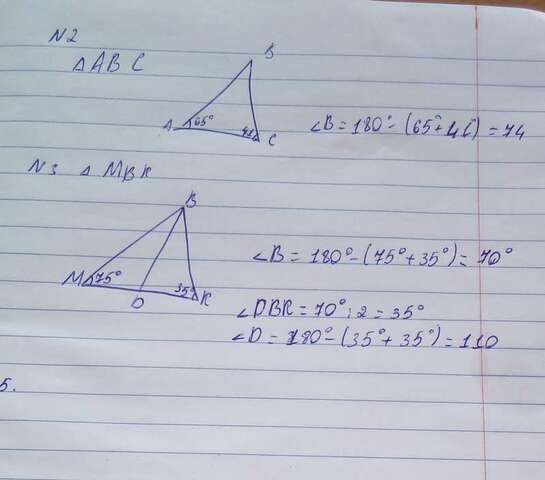 N2
△ABC
B
A 65° 41° C
∠B = 180° - (65° + 41°) = 74
N3 △ MBK
B
M 75° 35° K
D
∠B = 180° - (75° + 35°) = 70°
∠DBK = 70° : 2 = 35°
∠D = 180° - (35° + 35°) = 110
5.